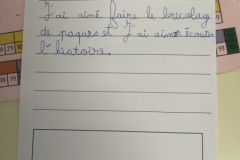 J'ai aimé faire le bricolage
de paques et J'ai aimé écouter
l'histoire.